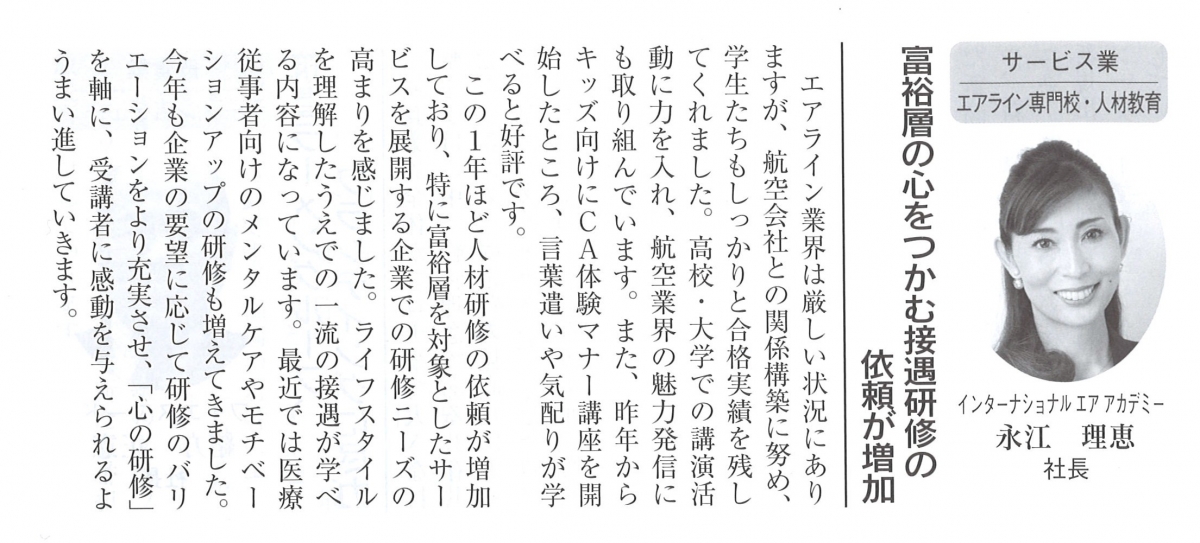 サービス業
エアライン専門校・人材教育
インターナショナル エア アカデミー
永江 理恵
社長
富裕層の心をつかむ接遇研修の
依頼が増加
エアライン業界は厳しい状況にあり
ますが、航空会社との関係構築に努め、
学生たちもしっかりと合格実績を残し
てくれました。高校・大学での講演活
動に力を入れ、航空業界の魅力発信に
も取り組んでいます。また、昨年から
キッズ向けにCA体験マナー講座を開
始したところ、言葉遣いや気配りが学
べると好評です。
この1年ほど人材研修の依頼が増加
しており、特に富裕層を対象としたサー
ビスを展開する企業での研修ニーズの
高まりを感じました。ライフスタイル
を理解したうえでの一流の接遇が学べ
る内容になっています。最近では医療
従事者向けのメンタルケアやモチベー
ションアップの研修も増えてきました。
今年も企業の要望に応じて研修のバリ
エーションをより充実させ、「心の研修」
を軸に、受講者に感動を与えられるよ
うまい進していきます。